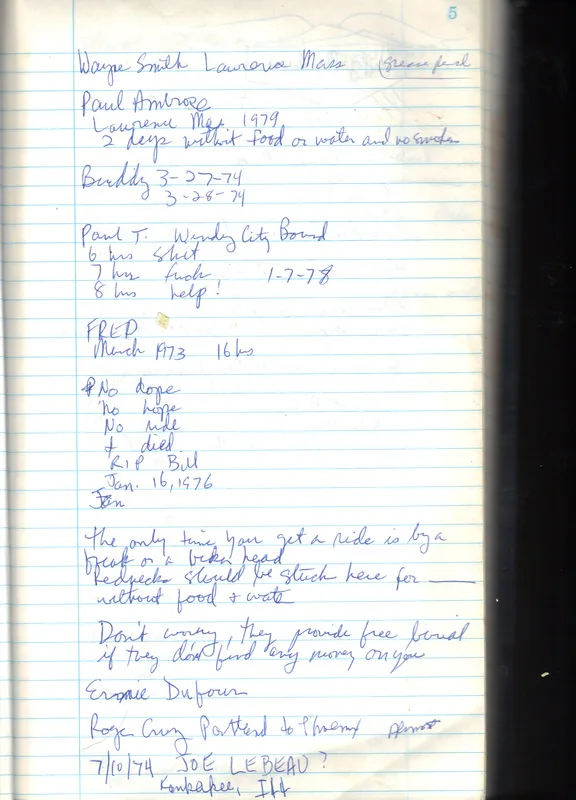 5
Wayne Smith Lawrence Mass (grease pencil
Paul Ambrose
Lawrence Mas 1979
2 days without food or water and no smokes
Buddy 3-27-74
3-28-74
Paul T. Windy City Bound
6 hrs shit
7 hrs fuck 1-7-78
8 hrs help!
FRED
March 1973 16 hs
No dope
no hope
No ride
+ died
RIP Bill
Jan. 16, 1976
Jan
the only time you get a ride is by a
freak or a head
Rednecks should be stuck here for ____
without food & wate
Don't worry, they provide free burial
if they don't find any money on you
Ernie Dufour
Roger Cruz Portland to Phoenix
7/10/74 JOE LEBEAU ?
Kankakee, Ill